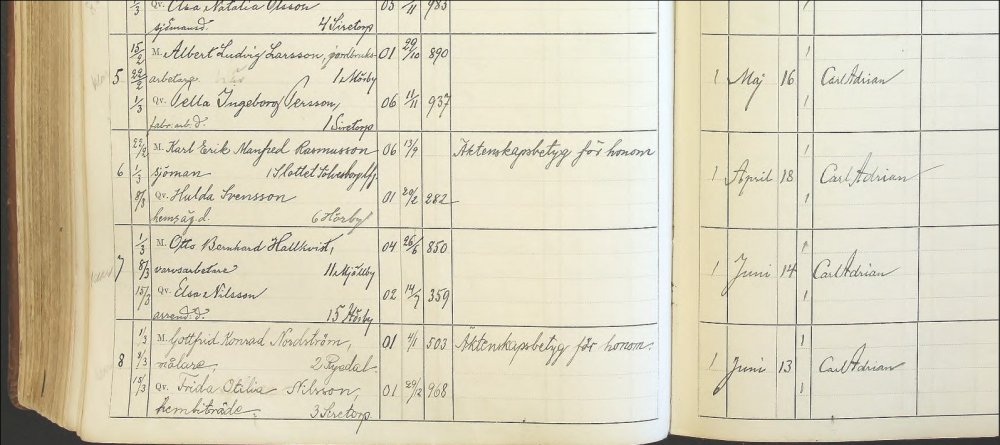 1/3 Qv. Elsa Natalia Olsson 03 /11 983
sjömansd. 4 Siretorp
5 15/2 M. Albert Ludvig Larsson, jordbruks- 01 29/10 890 1 Maj 16 1 Carl Adrian
22/2 arbetare 1 Mörby
1/3 Qv. Vella Ingeborg Persson, 06 11/11 937 1
fabr.arb.d. 1 Siretorp
6 22/2 M. Karl Erik Manfred Rasmusson 06 13/9 Äktenskapsbetyg för honom 1
1/3 sjöman 1 Slottet Sölvesborg lfg 1 April 18 Carl Adrian
8/3 Qv. Hulda Svensson 01 20/2 282 1
hemsäg.d. 6 Hörby
7 1/3 M. Otto Bernhard Hallkvist, 04 26/6 850 1
8/3 varvsarbetare 11 Mjällby 1 Juni 14 Carl Adrian
15/3 Qv. Elsa Nilsson 02 14/7 359 1
arrend.d. 15 Hörby
8 1/3 M. Gottfrid Konrad Nordström, 01 4/1 503 Äktenskapsbetyg för honom. 1
8/3 målare, 2 Rydal 1 Juni 13 Carl Adrian
15/3 Qv. Frida Otilia Nilsson, 01 29/12 968 1
hembiträde 3 Siretorp